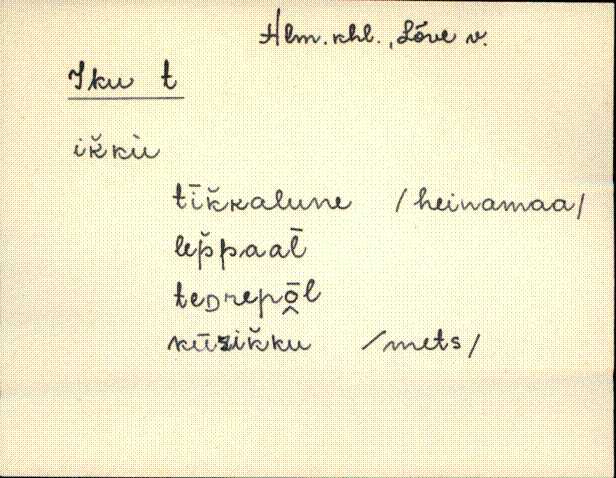 Hlm. khl., Lõve v.
Iku t
ik̆kù
tīk̆kalune /heinamaa/
lep̆paat̄
teᴅrepō̭l
kūzik̆ku /mets/